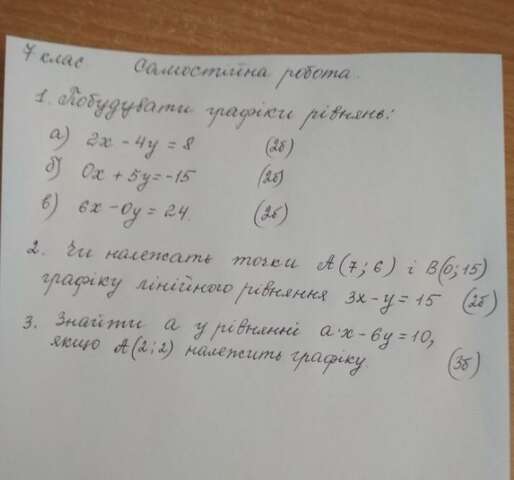 7 клас Самостійна робота.
1. Побудувати графіки рівнянь:
а) 2x - 4y = 8 (2б)
б) 0x + 5y = -15 (2б)
в) 6x - 0y = 24. (2б)
2. Чи належать точки A(7; 6) і B(0; 15)
графіку лінійного рівняння 3x - y = 15 (2б)
3. Знайти а у рівнянні a·x - 6y = 10,
якщо A(2; 2) належить графіку. (3б)